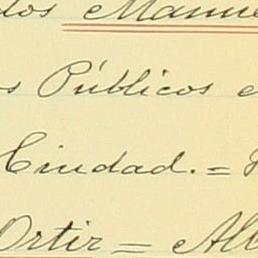 dos Manue
s Públicos e
Ciudad. =
Ortiz = Alb